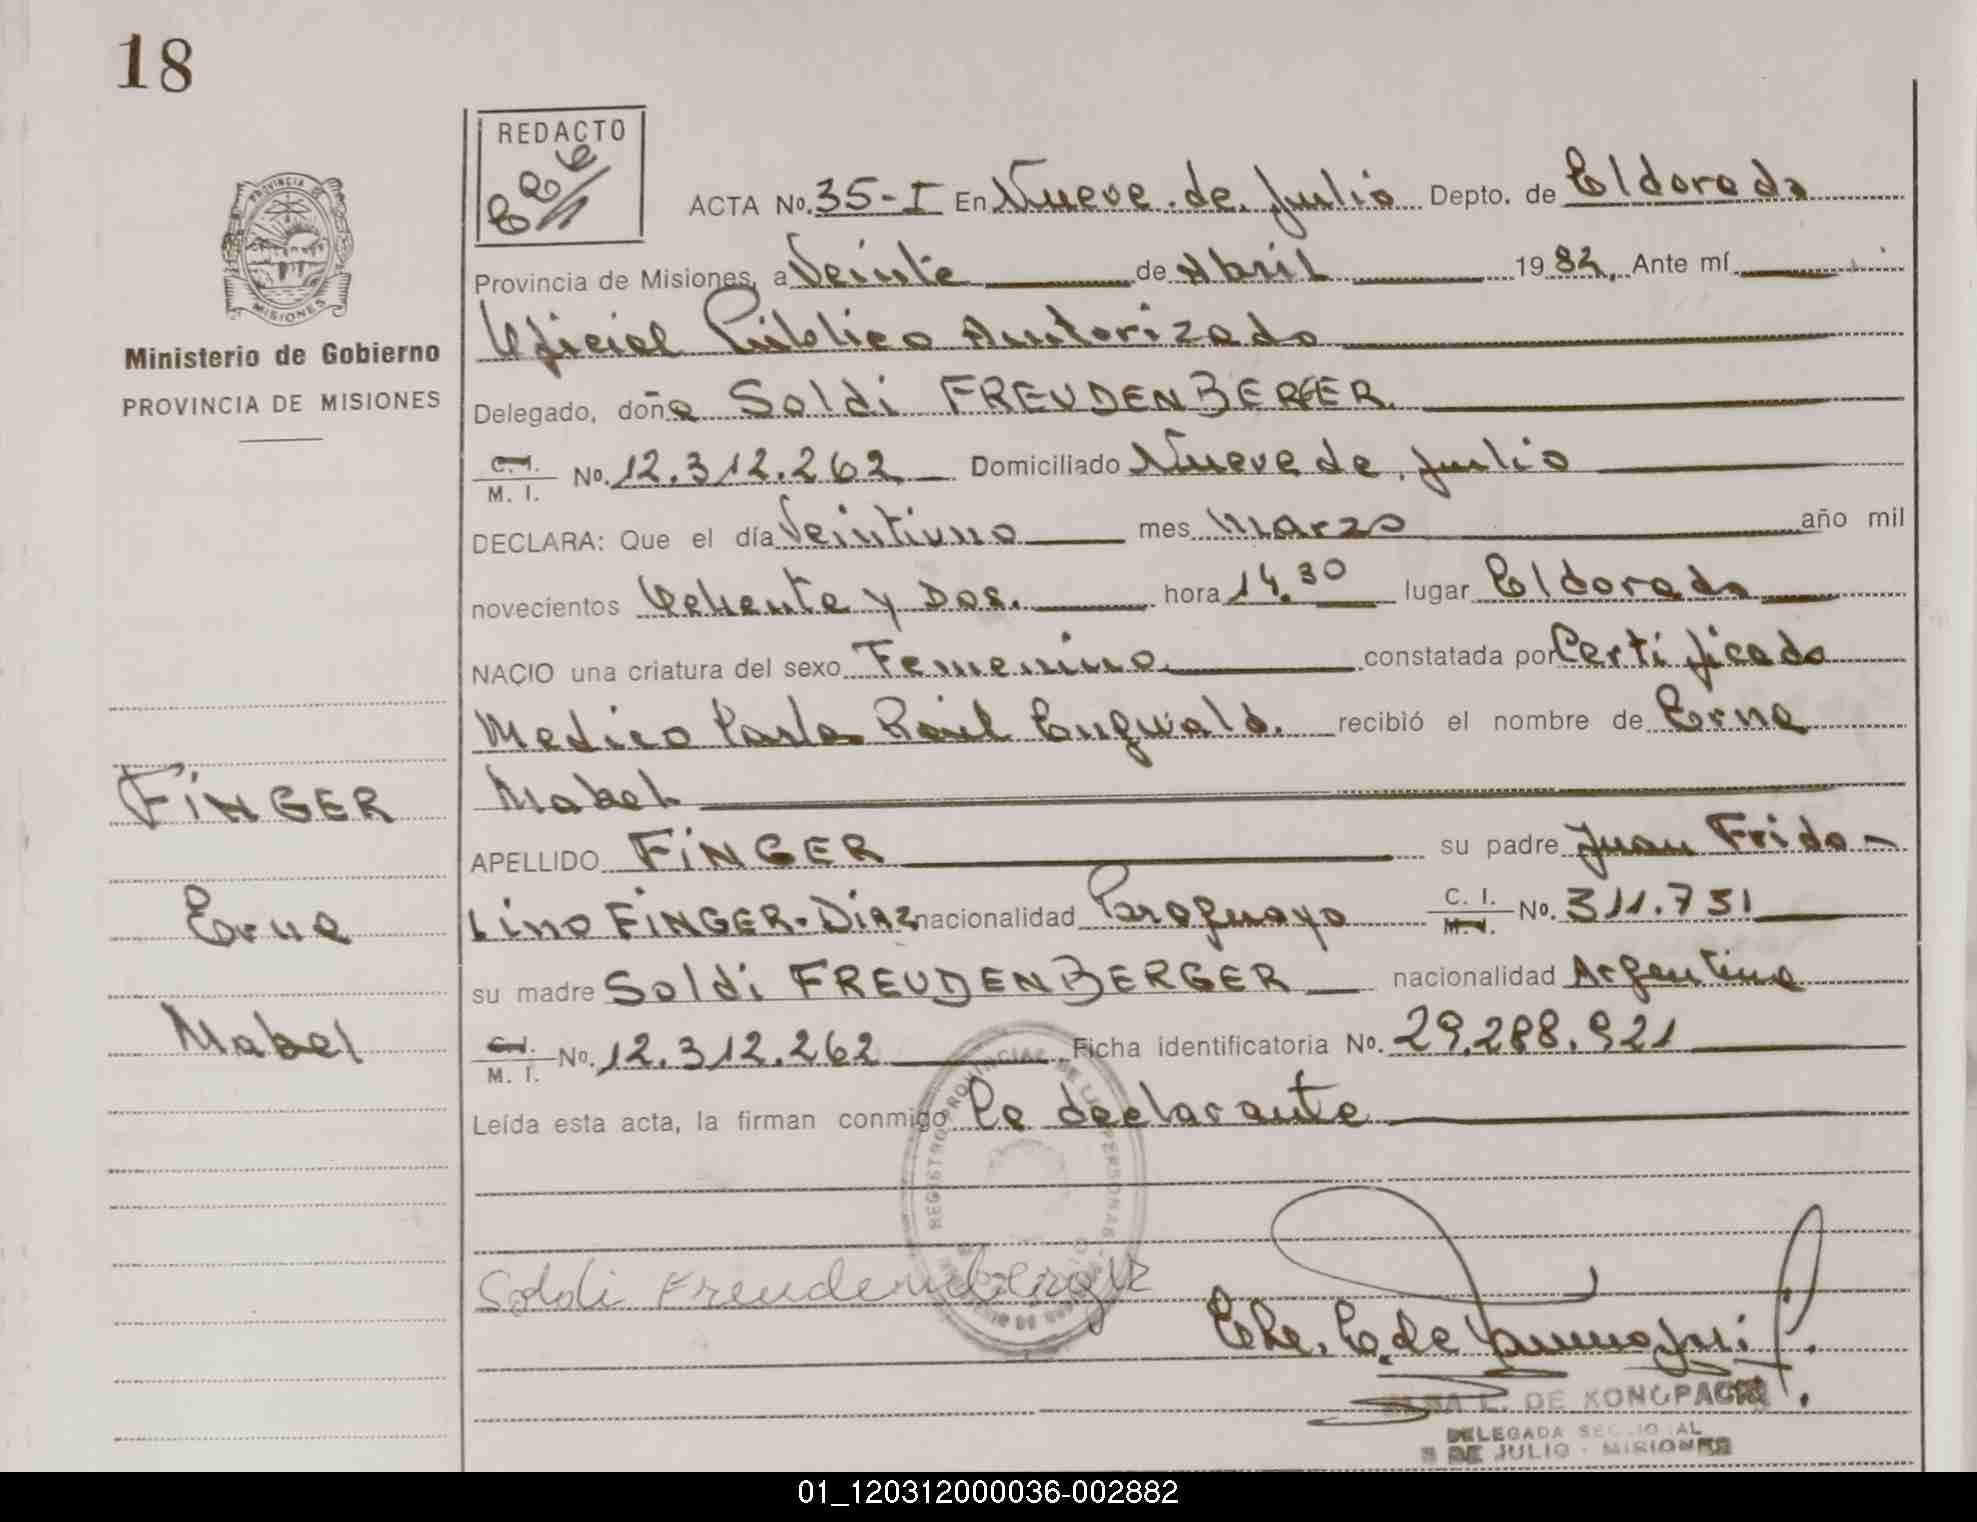 18
REDACTO
PROVINCIA DE
MISIONES
Ministerio de Gobierno
PROVINCIA DE MISIONES
ACTA No. 35-I En Nueve de Julio Depto. de Eldorado
Provincia de Misiones, a Veinte de Abril 1982, Ante mí
Oficial Público Autorizado
Delegado, doña Soldi FREUDENBERGER
C. I. M. I. No. 12.312.262 Domiciliado Nueve de Julio
DECLARA: Que el día Veintiuno mes Marzo año mil
novecientos Ochenta y Dos. hora 14.30 lugar Eldorado
NACIO una criatura del sexo Femenino constatada por Certificado
Medico Carlos Raúl recibió el nombre de Erna
Mabel
APELLIDO FINGER su padre Juan Frido-
lino FINGER-Diaz nacionalidad Paraguaya C. I. M. I. No. 311.731
su madre Soldi FREUDENBERGER nacionalidad Argentina
C. I. M. I. No. 12.312.262 Ficha identificatoria No. 29.288.921
Leída esta acta, la firman conmigo la declarante
FINGER
Erna
Mabel
REGISTRO PROVINCIAL DE LAS PERSONAS
Soldi Freudenberger
L. DE KONOPACKI
DELEGADA SECCIONAL
9 DE JULIO - MISIONES
01_120312000036-002882